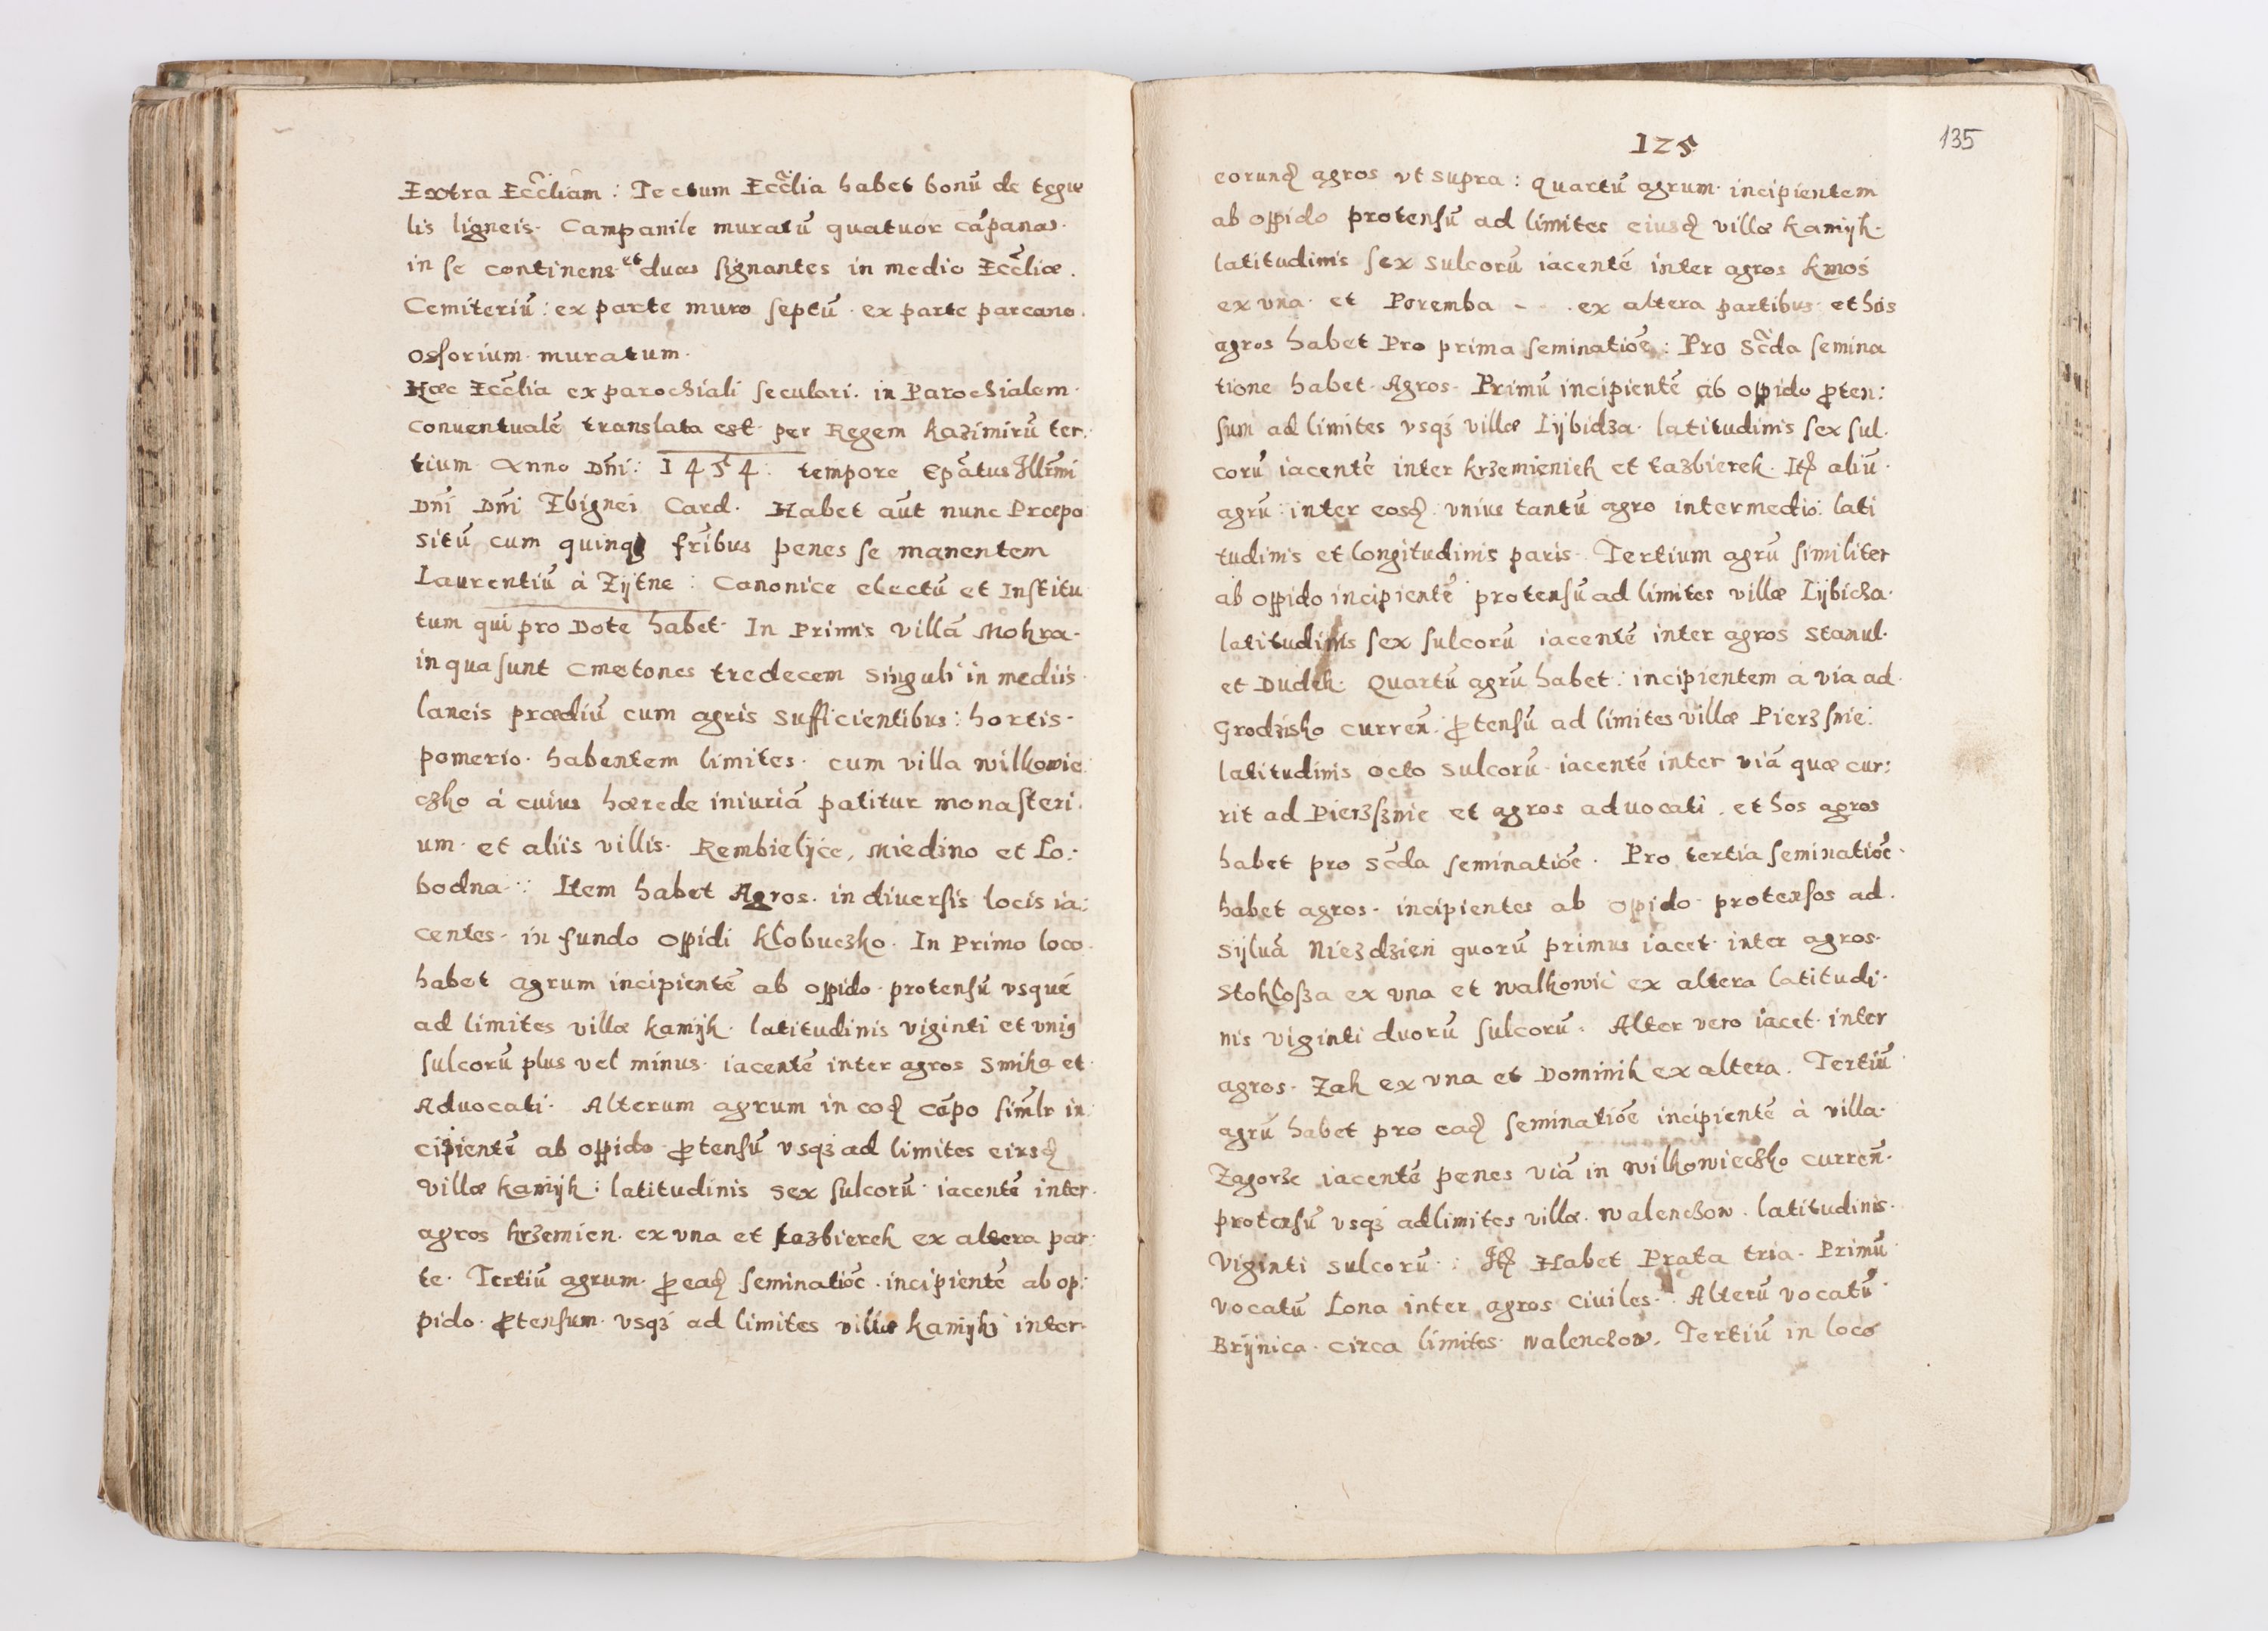 Extra Eccliam : Tectum Ecclia habet bonū de tegu
lis ligneis. Campanile muratū quatuor cāpanas.
in se continens et duas signantes in medio Eccliæ.
Cemiteriū : ex parte muro septū . ex parte parcano.
osсorium muratum.
Hæc Ecclia ex parochiali seculari. in Parochialem.
conuentualē translata est per Regem Kazimirū ter.
tium Anno Dñi : 1454 : tempore Epātus Illrmi
Dñi Dñi Zbignei Card. Habet aūt nunc Præpo
sitū cum quinqꝫ frībus penes se manentem
Laurentiū à Zÿtne : Canonice electū et Institu
tum qui pro Dote habet. In Primis villā Mokra.
in qua sunt Cmetones tredecem singuli in mediis.
laneis prædiū cum agris sufficientibus : hortis.
pomerio. habentem limites. cum villa Wilkowie:
czko à cuius hærede iniuriā patitur monasteri.
um. et aliis villis. Rembielÿce, Miedzno et Lo:
bodna :: Item habet Agros. in diuersis locis ia:
centes. in fundo oppidi Kłobuczko. In Primo loco.
habet agrum incipientē ab oppido. protensū vsque
ad limites villæ Kamÿk. latitudinis viginti et vniꝰ
sulcorū plus vel minus. iacentē inter agros Smika et.
Aduocati. Alterum agrum in eoꝺ cāpo simlr in:
cipientē ab oppido ꝓtensū vsqꝫ ad limites eiusꝺ
villæ Kamÿk : latitudinis sex sulcorū. iacentē inter.
agros Krzemien. ex vna et Łazbierek ex altera par:
te. Tertiū agrum. ꝓ eaꝺ seminatiōe . incipientē ab op:
pido. ꝓtensum. vsqꝫ ad limites villæ Kamÿk inter.
125
135
eorunꝺ agros vt supra : Quartū agrum. incipientem
ab oppido protensū ad limites eiusꝺ villæ Kamÿk.
latitudinis sex sulcorū iacentē inter agros Kmoś
ex vna. et Poremba - - . ex altera partibus. et hos
agros habet Pro prima seminatiōe : Pro Scda semina
tione habet. Agros. Primū incipientē ab oppido ꝓten:
sum ad limites vsqꝫ villæ Lÿbidza. latitudinis sex sul.
corū iacentē inter Krzemieniek et Łazbierek. Itꝺ aliū.
agrū : inter eosꝺ : vnius tantū agro intermedio : lati
tudinis et longitudinis paris. Tertium agrū similiter
ab oppido incipientē protensū ad limites villæ Lÿbicza.
latitudinis sex sulcorū iacentē inter agros Stanul.
et Dudek. Quartū agrū habet : incipientem à via ad.
Grodzisko curreñ. ꝓtensū ad limites villæ Pierzsnie :
latitudinis octo sulcorū. iacentē inter viā quæ cur:
rit ad Pierzsznie et agros aduocati . et hos agros
habet pro scda seminatiōe . Pro tertia seminatiōe.
habet agros. incipientes ab opido. protensos ad.
sÿluā Niezdzien quorū primus iacet. inter agros.
Stokłosza ex vna et Walkowic ex altera latitudi.
nis viginti duorū sulcorū. Alter vero iacet. inter
agros. Zak ex vna et Dominik ex altera. Tertiū
agrū habet pro eaꝺ seminatiōe incipientē à villa.
Zagorze iacentē penes viā in Wilkowieczko curreñ.
protensū vsqꝫ ad limites villæ. Walenczow. latitudinis.
Viginti sulcorū : Itꝺ Habet Prata tria. Primū
vocatū Łona inter agros ciuiles. Alterū vocatū
Brÿnica. circa limites. Walenczow. Tertiū in loco